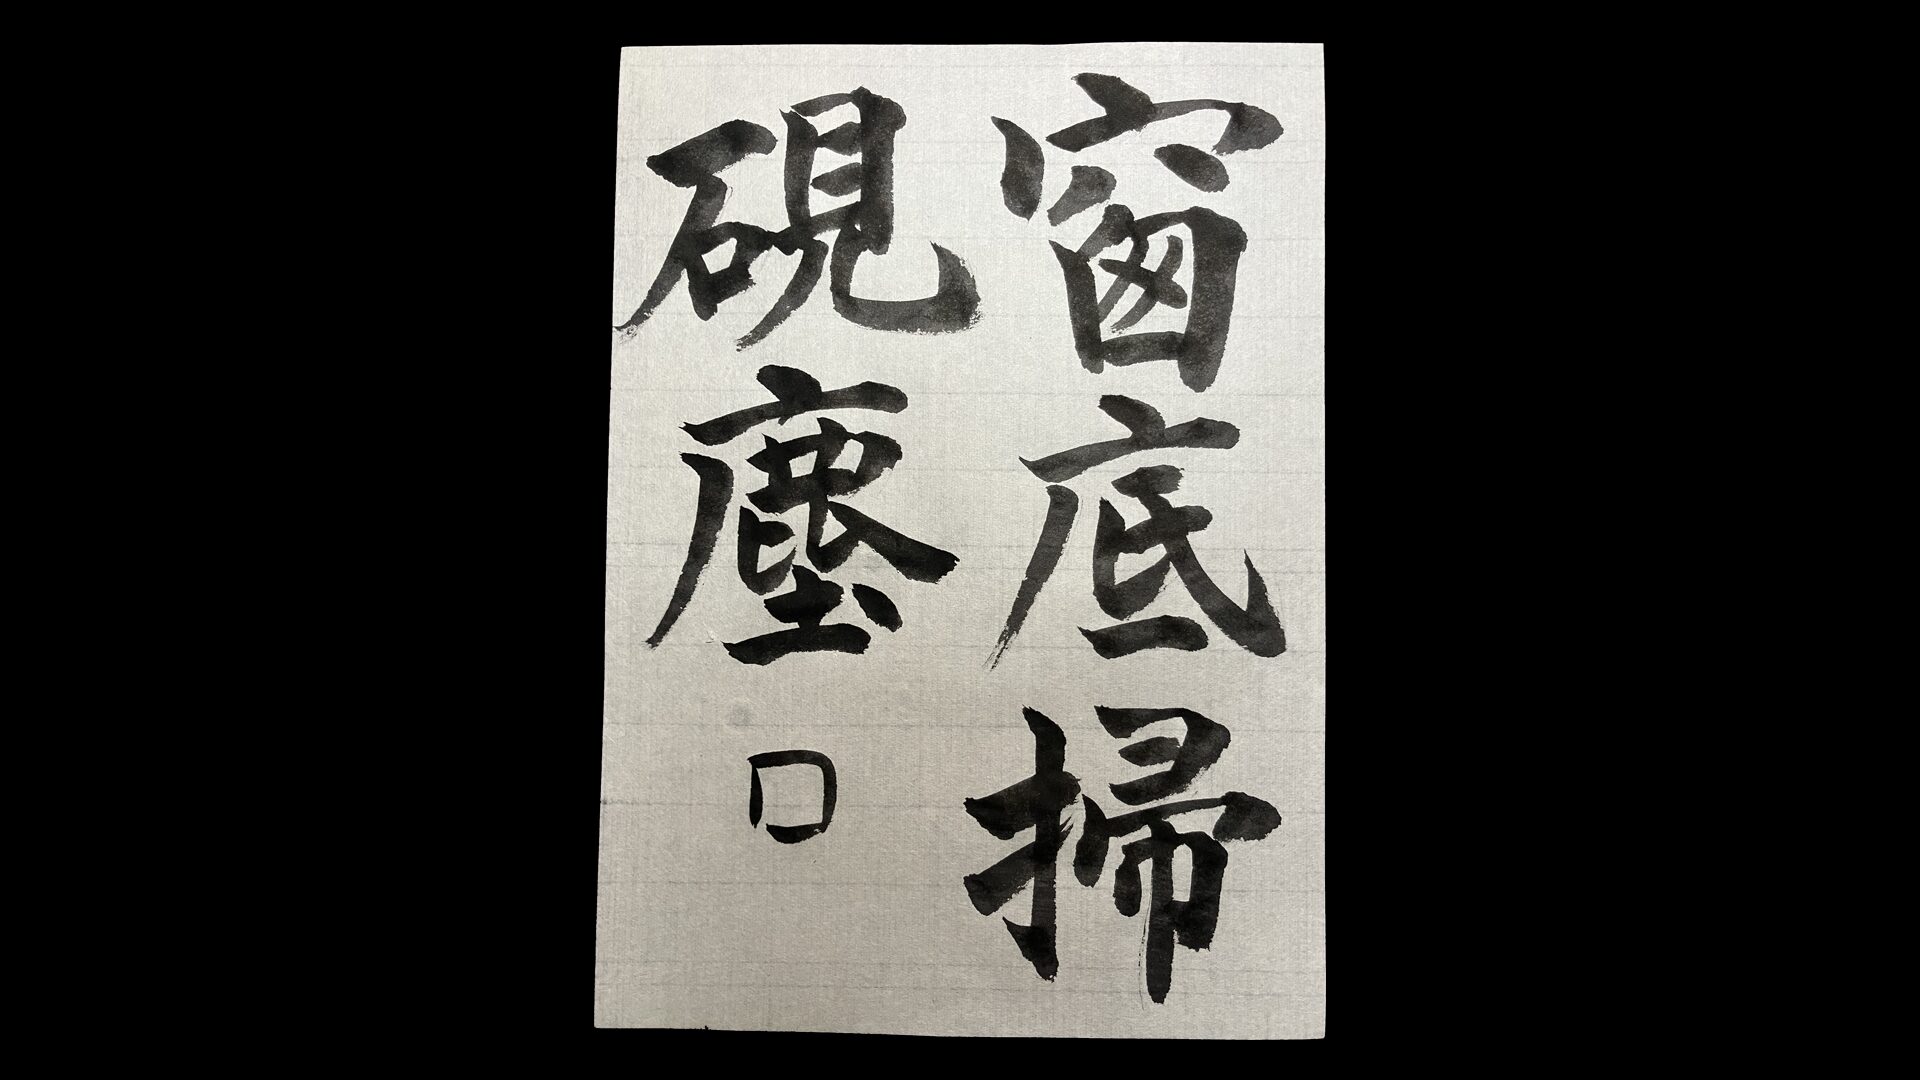 窗底掃
硯塵口